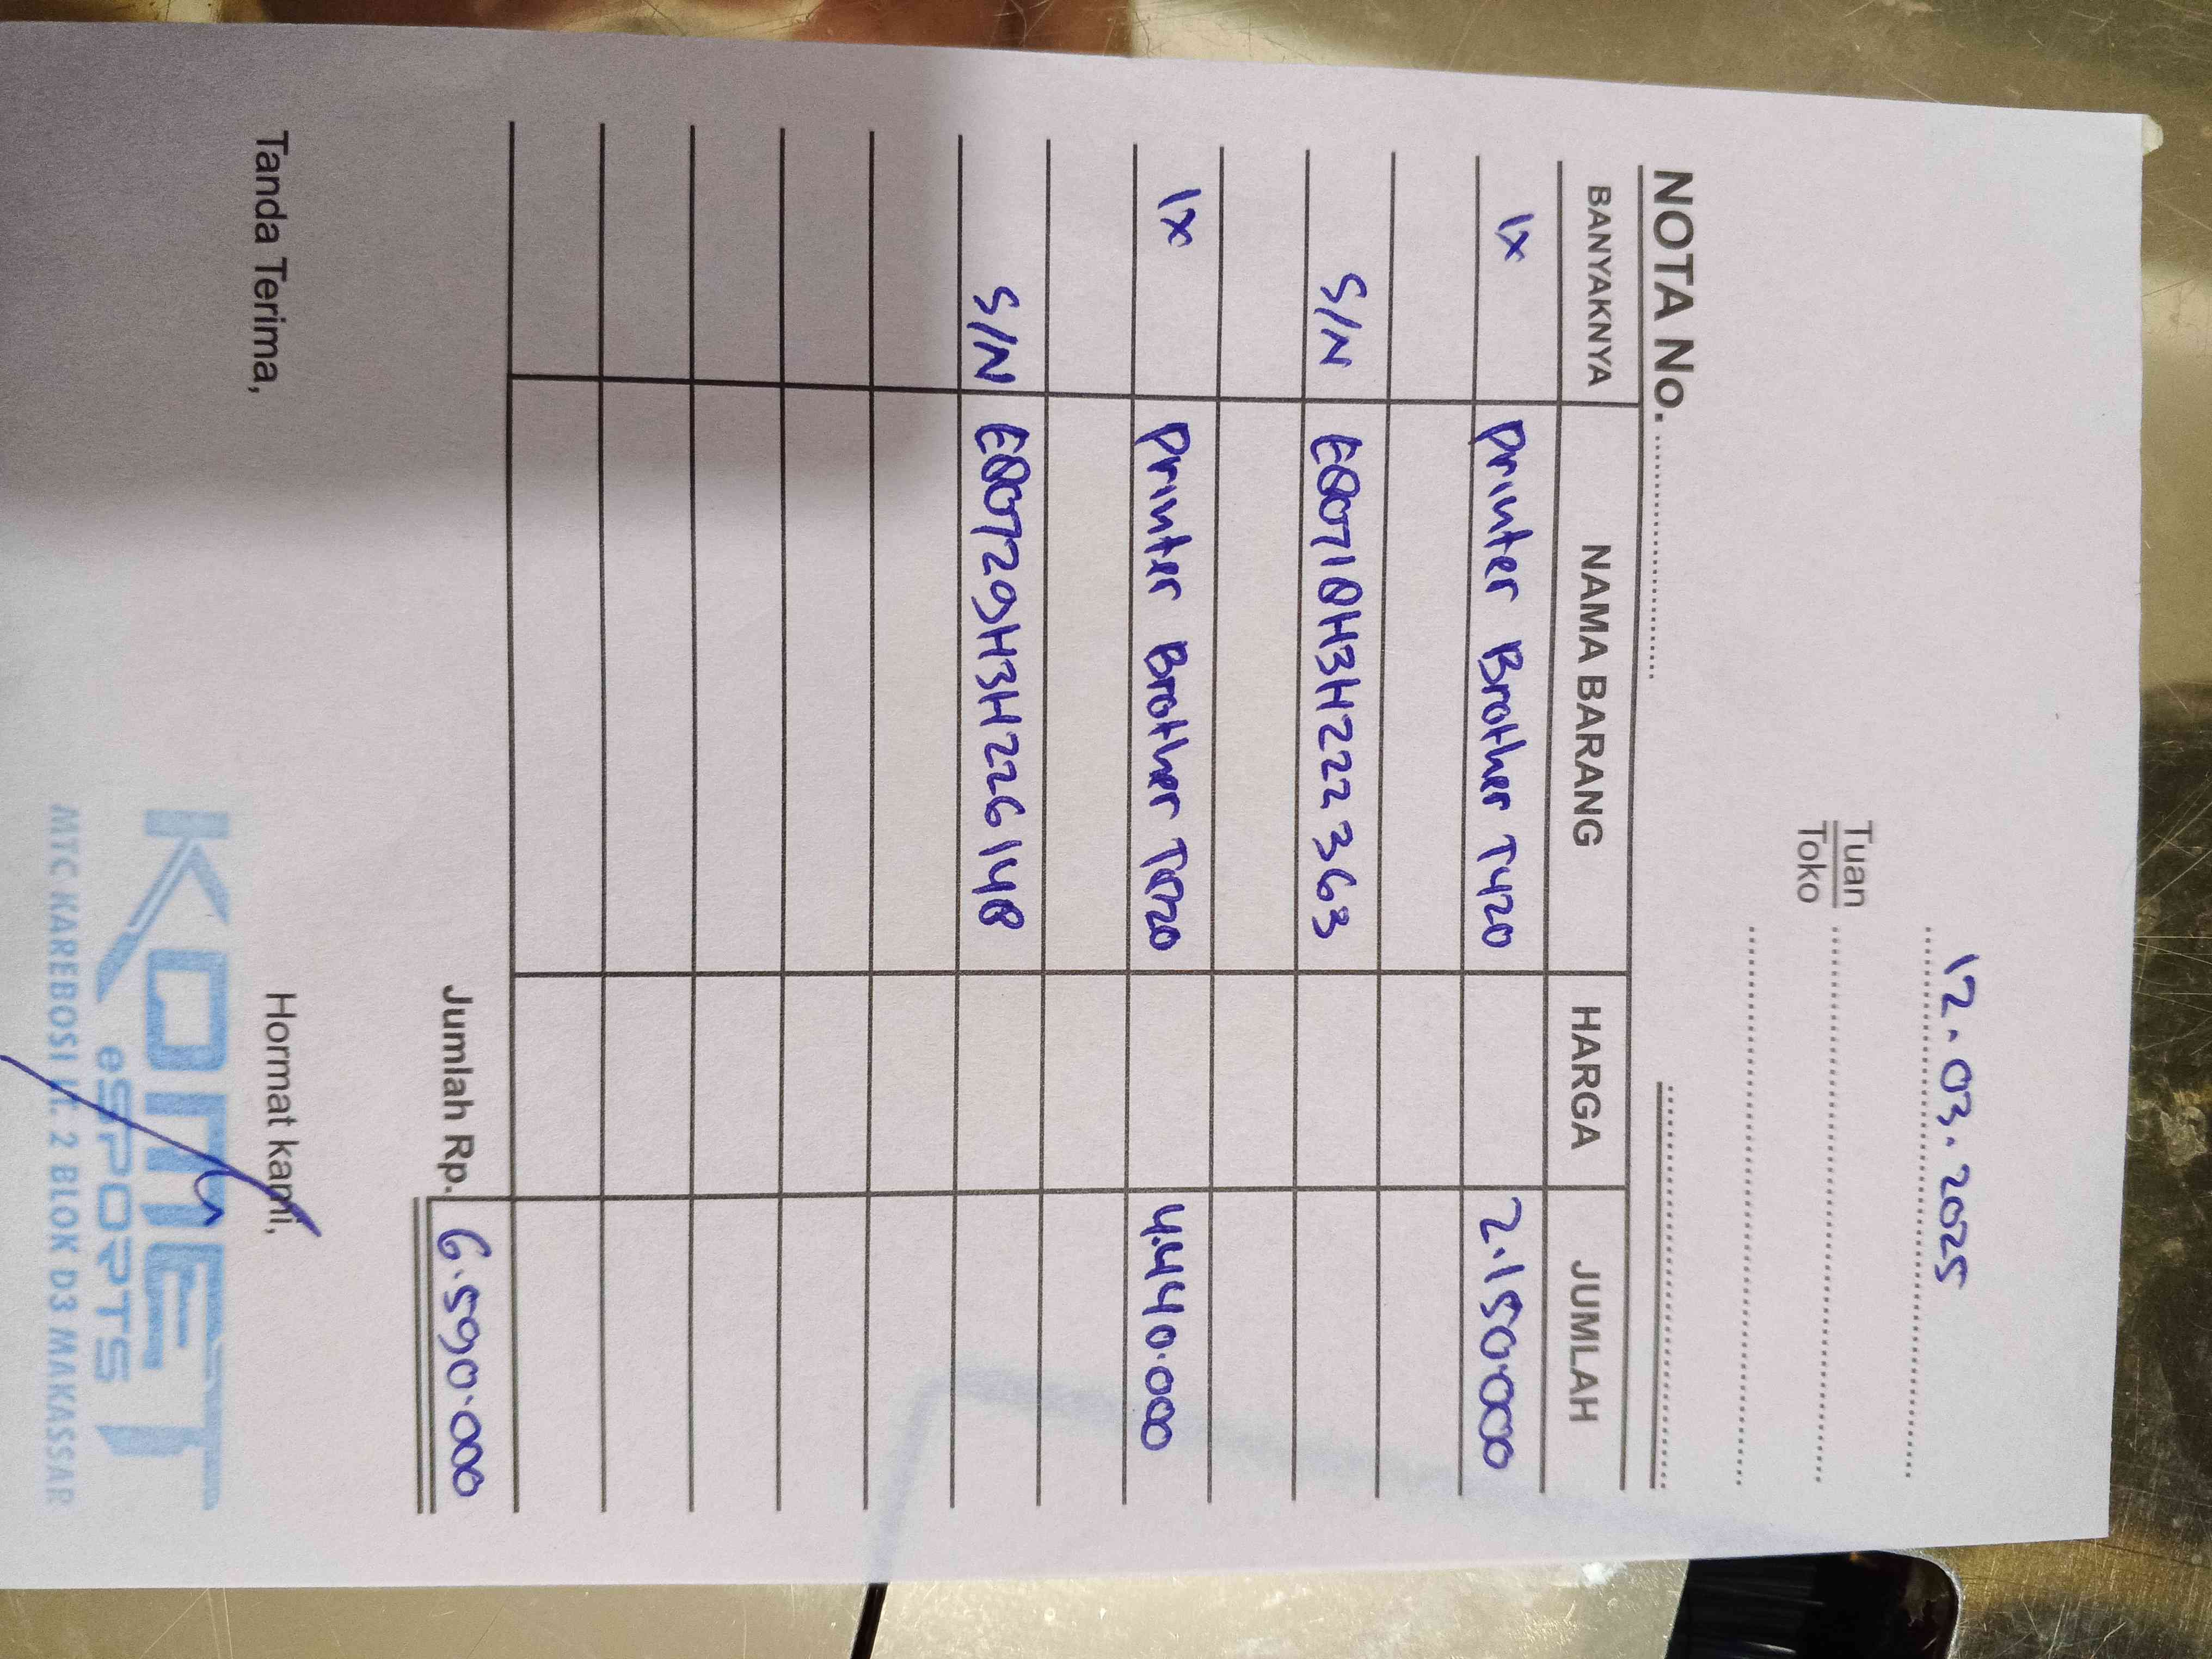 12.03.2025
Tuan
Toko
NOTA No.
BANYAKNYA NAMA BARANG HARGA JUMLAH
1x Printer Brother T420 2.150.000
S/N E80710H3H222363
1x Printer Brother T720 4.440.000
S/N E80729H3H226140
Jumlah Rp. 6.590.000
Tanda Terima, Hormat kami,
KOMET
eSPORTS
MTC KAREBOSI Lt. 2 BLOK D3 MAKASSAR